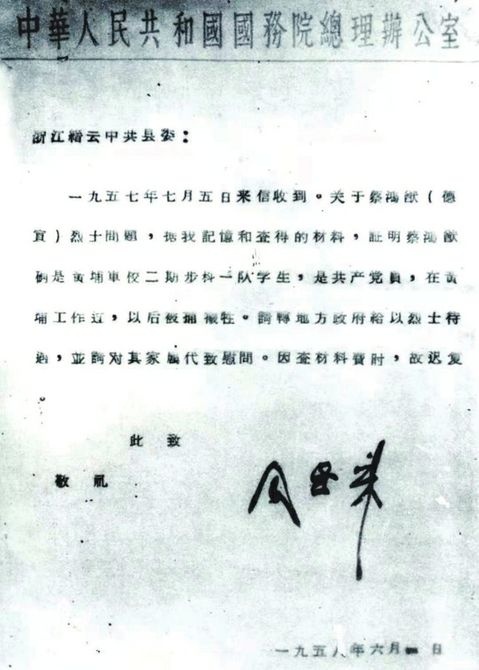 中華人民共和國國務院總理辦公室
浙江縉云中共县委：
一九五七年七月五日来信收到。关于蔡鴻猷（德
賓）烈士問題，据我記憶和查得的材料，証明蔡鴻猷
确是黃埔軍校二期步科一队学生，是共产党員，在黃
埔工作过，以后被捕犧牲。請轉地方政府給以烈士待
遇，並請对其家屬代致慰問。因查材料費时，故迟复
。
此致
敬礼
周恩来
一九五八年六月 日